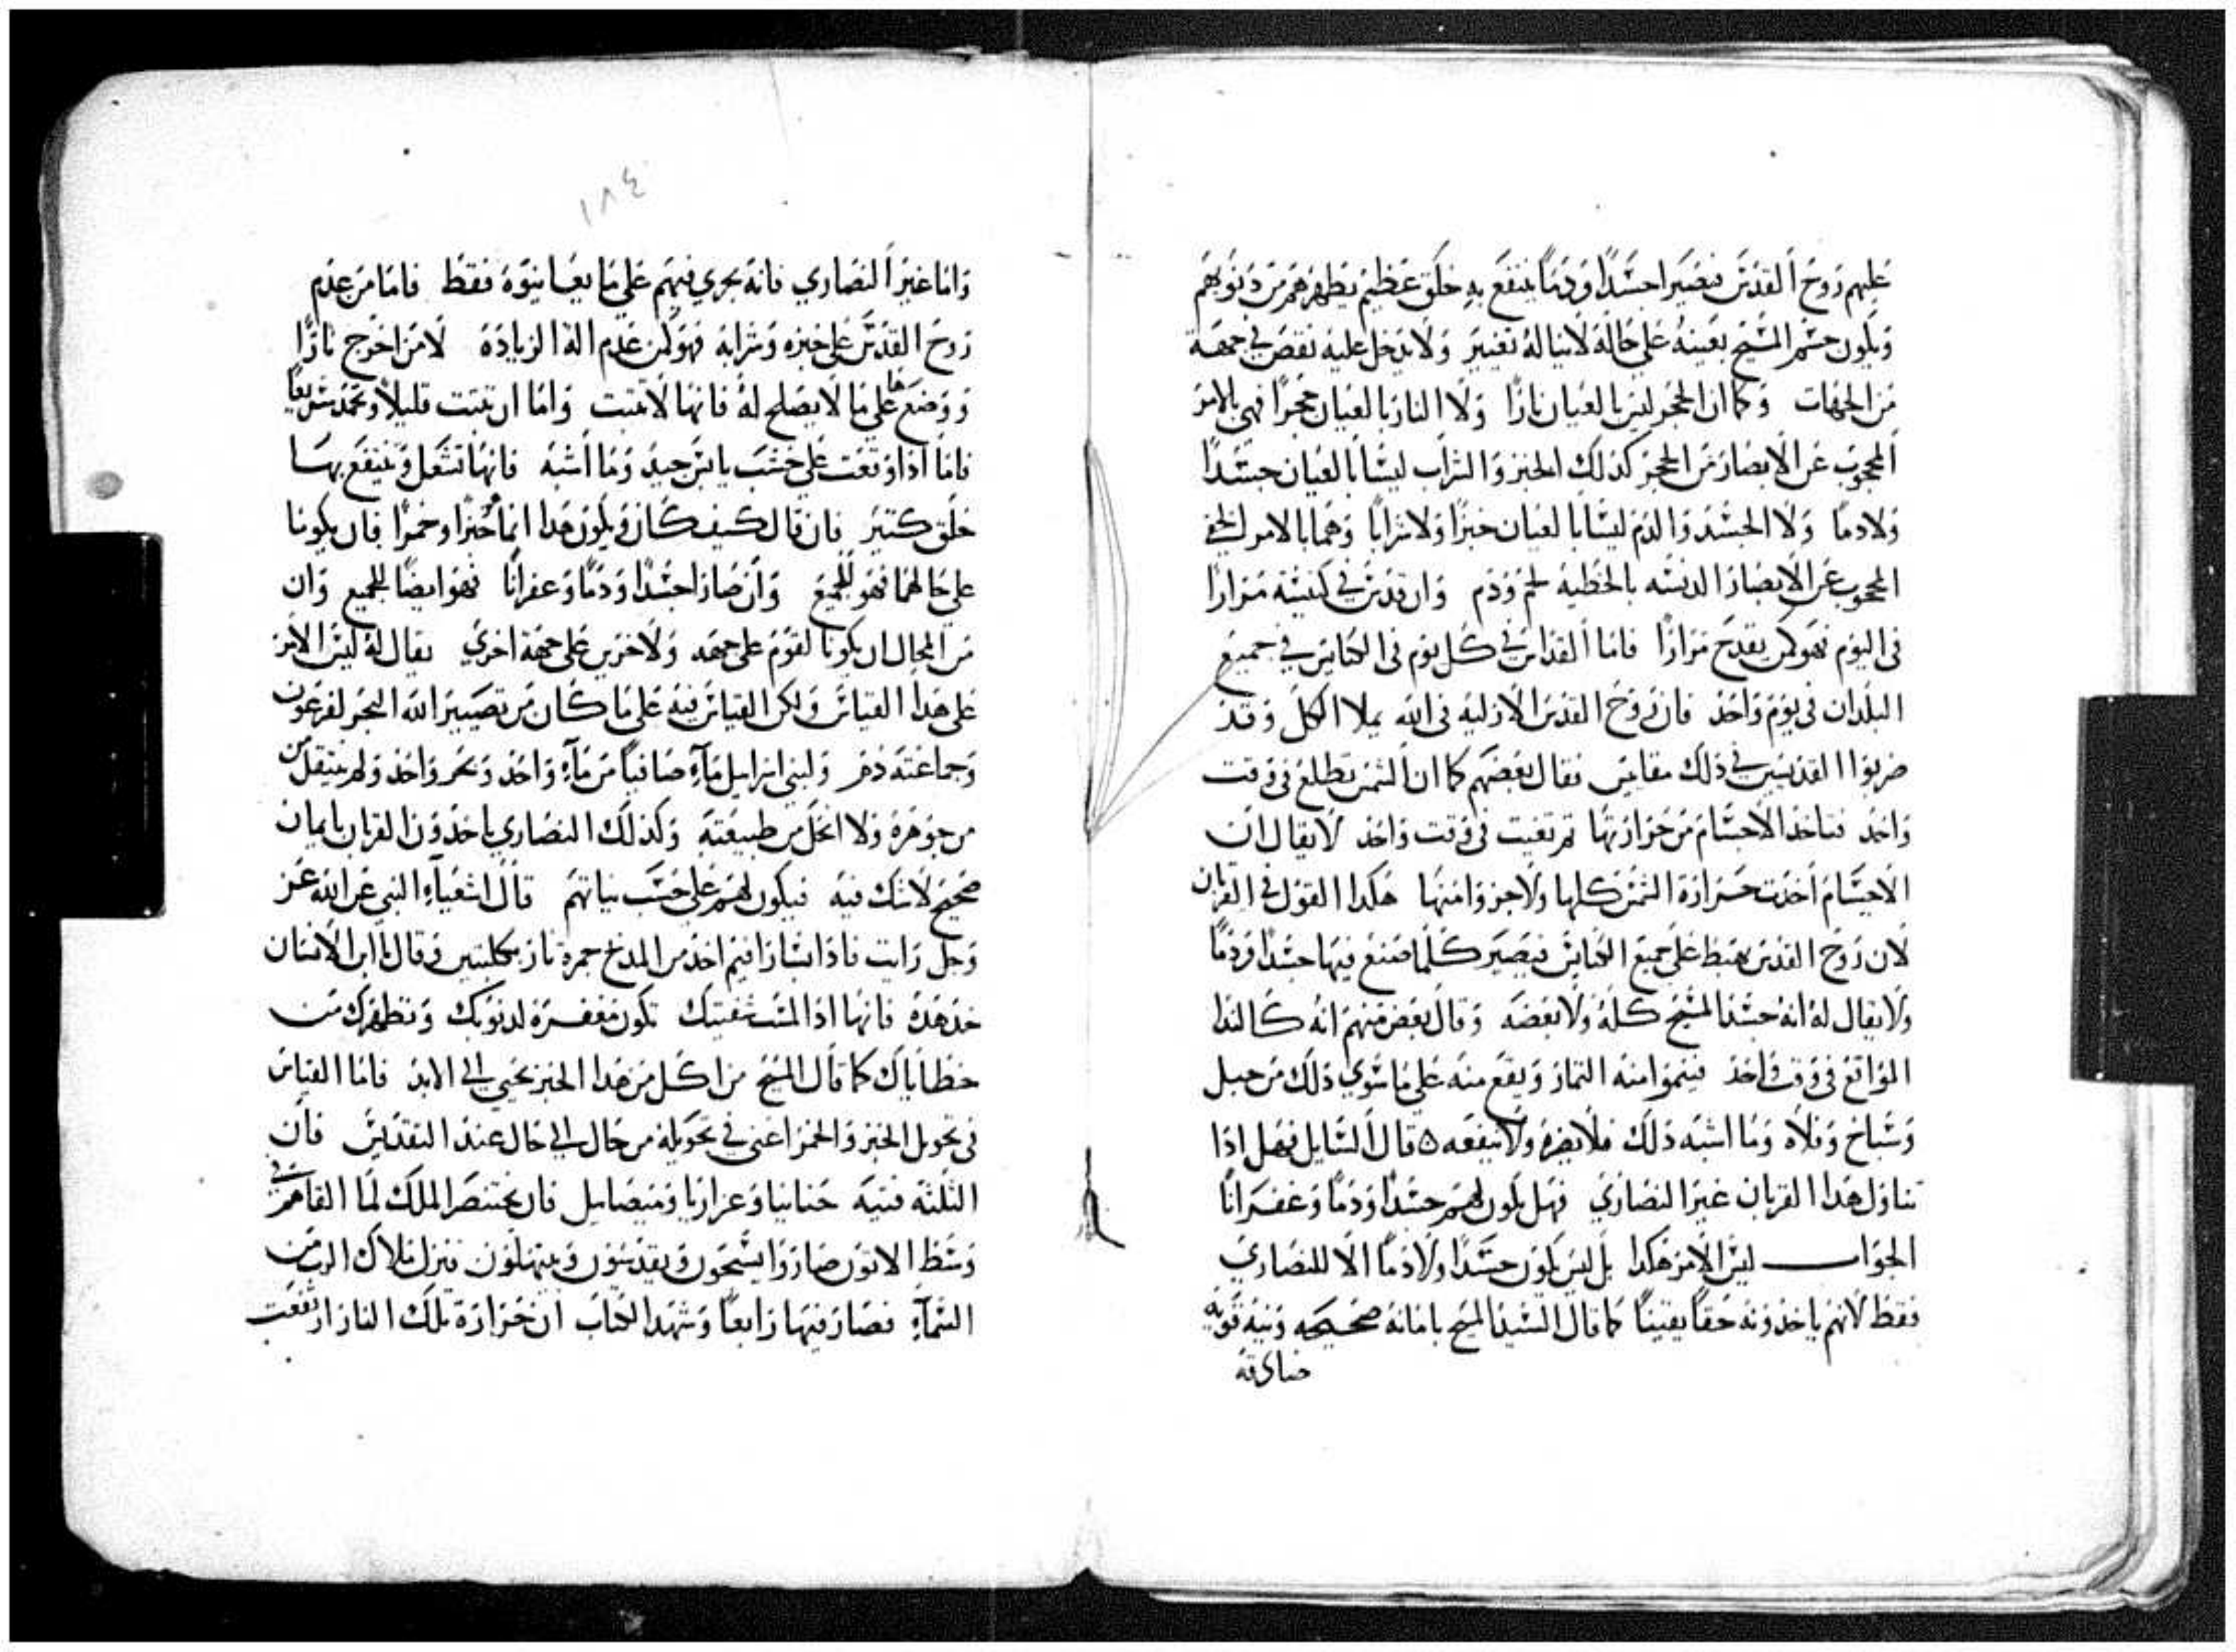 عليهم روح القدس فيصيرا جسدًا ودمًا ينتفع به خلق عظيم يطهرهم من ذنوبهم
ويكون جسم المسيح بعينه على حاله لا يناله تغيير ولا يدخل عليه نقص في جهة
من الجهات وكما ان الحجر ليس بالعيان نارًا ولا النار بالعيان حجرًا فهي بالامر
المحجوب عن الابصار من الحجر كذلك الخبز والشراب ليسا بالعيان جسدًا
ولا دمًا ولا الجسد والدم ليسا بالعيان خبزًا ولا شرابًا وهما بالامر الخفي
المحجوب عن الابصار الدنسه بالخطيه لحم ودم وان قدس في كنيسة مرارا
في اليوم فهو كمن يقدح مرارًا فاما القداس في كل يوم في الكنايس في جميع
البلدان في يوم واحد فان روح القدس الازليه في الله يملا الكل وقد
ضربوا القديسين في ذلك مقايس فقال بعضهم كما ان الشمس تطلع في وقت
واحد فتاخذ الاجسام من حرارتها ثم تغيب في وقت واحد لا يقال ان
الاجسام اخذت حرارة الشمس كلها ولا جزوا منها هكدا القول في القربان
لان روح القدس يهبط على جميع الكنايس فيصير كلما صنع فيها جسدًا ودمًا
ولا يقال له انه جسد المسيح كله ولا بعضه وقال بعض منهم انه كالندا
الواقع في وقت واحد فينموا منه الثمار ويقع منه على ما سوي ذلك من جبل
وسباخ وفلاه وما اشبه ذلك فلا يضره ولا ينفعه ٥ قال السايل فهل اذا
تناول هدا القربان غير النصاري فهل يكون لهم جسدًا ودمًا وغفرانًا
الجواب ليس الامر هكدا بل ليس يكون جسدًا ولا دمًا الا للنصاري
فقط لانهم ياخذونه حقًا يقينًا كما قال السيد المسيح بامانة صحيحه ونية قويه
صادقه
١٨٤
واما غير النصاري فانه يجري فيهم على ما يعاينوه فقط فاما من عدم
روح القدس على خبزه وشرابه فهو كمن عدم الة الزيادة لا من اخرج نارًا
ووضعها على ما لا يصلح له فانها لا تثبت واما ان تثبت قليلًا وتخمد سريعًا
فاما اذا وقعت على خشب يابس جيد وما اشبه فانها تشعل وينتفع بها
خلق كتير فان قال كيف كان ويكون هدا انما خبزًا وخمرًا فان يكونا
على حالهما فهو للجميع وان صارا جسدًا ودمًا وغفرانًا فهو ايضًا للجميع وان
من المحال ان يكونا لقوم على جهه ولاخرين على جهة اخري يقال له ليس الامر
على هدا القياس ولكن القياس فيه على ما كان من تصيير الله البحر لفرعون
وجماعته دم ولبني اسراييل مآء صافيًا من مآء واحد وبحر واحد ولم ينتقل من
من جوهره ولا انحل من طبيعته وكذلك النصاري ياخذون القربان بايمان
صحيح لا شك فيه فيكون لهم على حسب نياتهم قال اشعيآء النبي عن الله عز
وجل رايت فاذا بسارافيم اخذ من المذبح جمرة نار بكلبتين وقال يا ابن الانسان
خذ هذه فانها اذا لمست شفتيك تكون مغفرة لذنوبك وتطهرك من
خطاياك كما قال المسيح من اكل من هدا الخبز يحيي الي الابد فاما القياس
في تحويل الخبز والخمر اعني في تحويله من حال الي حال عند التقديس فان
الثلثه فتيه حنانيا وعزاريا وميصاييل فان بختنصر الملك لما القاهم في
وسط الاتون صاروا يسبحون ويقدسون ويتهللون فنزل ملاك الرب من
السمآء فصار فيها رابعًا وشهد الكتاب ان حرارة تلك النار ارتفعت